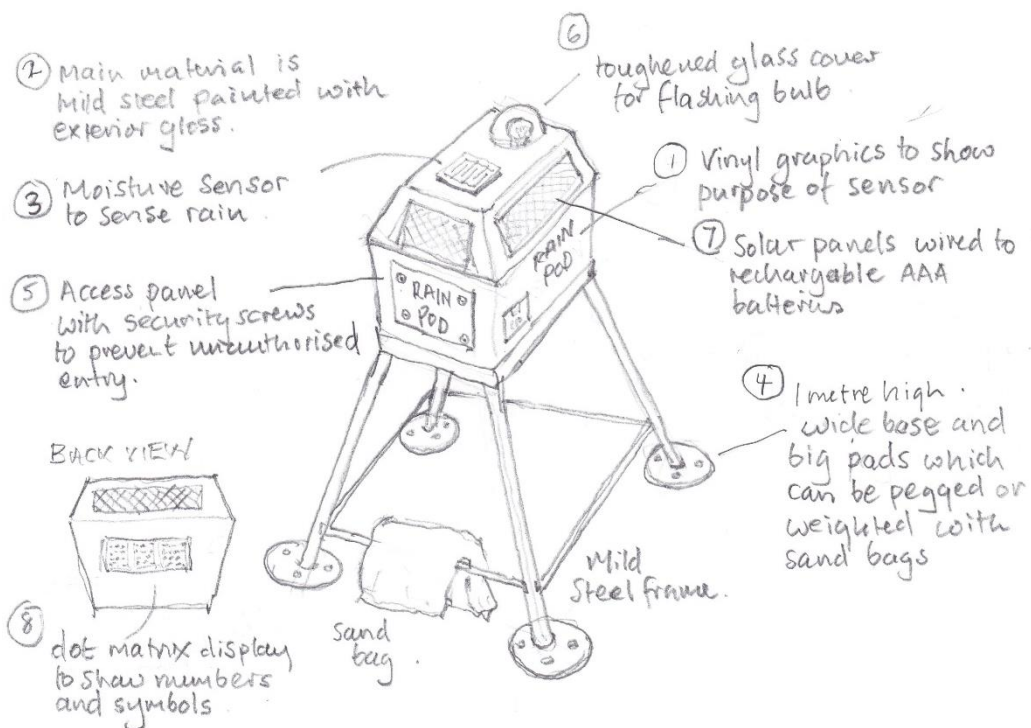 ② Main material is
Mild steel painted with
exterior gloss.
③ Moisture Sensor
to sense rain
⑤ Access panel
with security screws
to prevent unauthorised
entry.
BACK VIEW
⑧ dot matrix display
to show numbers
and symbols
⑥
toughened glass cover
for flashing bulb.
① Vinyl graphics to show
purpose of sensor
⑦ Solar panels wired to
rechargable AAA
batteries
④ 1 metre high.
wide base and
big pads which
can be pegged or
weighted with
sand bags
RAIN
POD
RAIN
POD
Mild
Steel frame.
sand
bag.